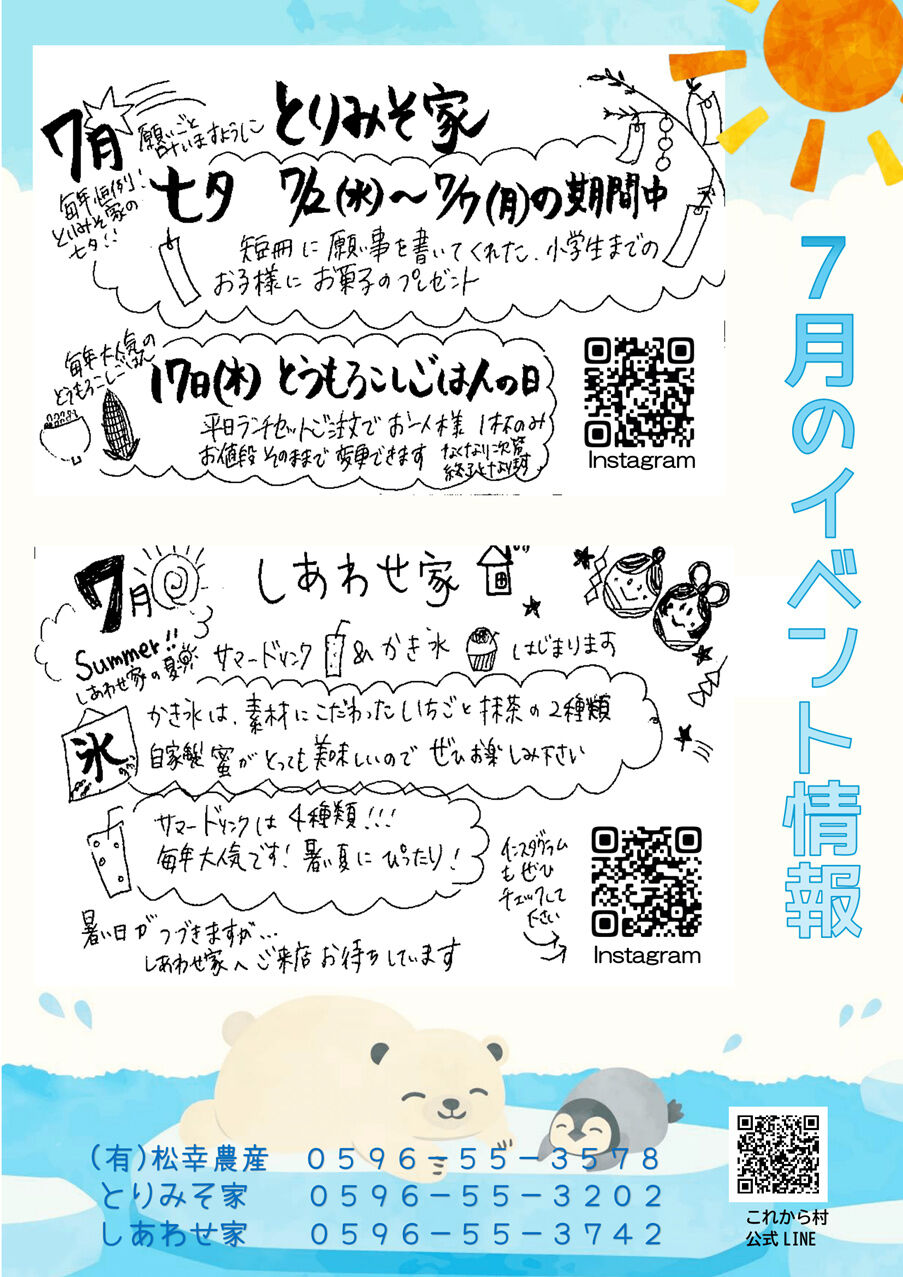 7月のイベント情報
7月
願いごと
叶いますように
とりみそ家
毎年恒例!
とりみそ家の
七夕!!
七夕 7/2(水)～7/7(月)の期間中
短冊に願い事を書いてくれた、小学生までの
お子様にお菓子のプレゼント
毎年大人気の
とうもろこしごはん
17日(木) とうもろこしごはんの日
平日ランチセットご注文でお一人様 1杯のみ
お値段そのままで変更できます なくなり次第
終了となります
Instagram
7月
しあわせ家
Summer!!
しあわせ家の夏
サマードリンク & かき氷 はじまります
氷
かき氷は、素材にこだわったいちごと抹茶の2種類
自家製蜜がとっても美味しいのでぜひお楽しみ下さい
サマードリンクは4種類!!!
毎年大人気です!暑い夏にぴったり!
インスタグラム
もぜひ
チェックして
ください
暑い日がつづきますが...
しあわせ家へご来店お待ちしています
Instagram
(有)松幸農産 0596-55-3578
とりみそ家 0596-55-3202
しあわせ家 0596-55-3742
これから村
公式LINE